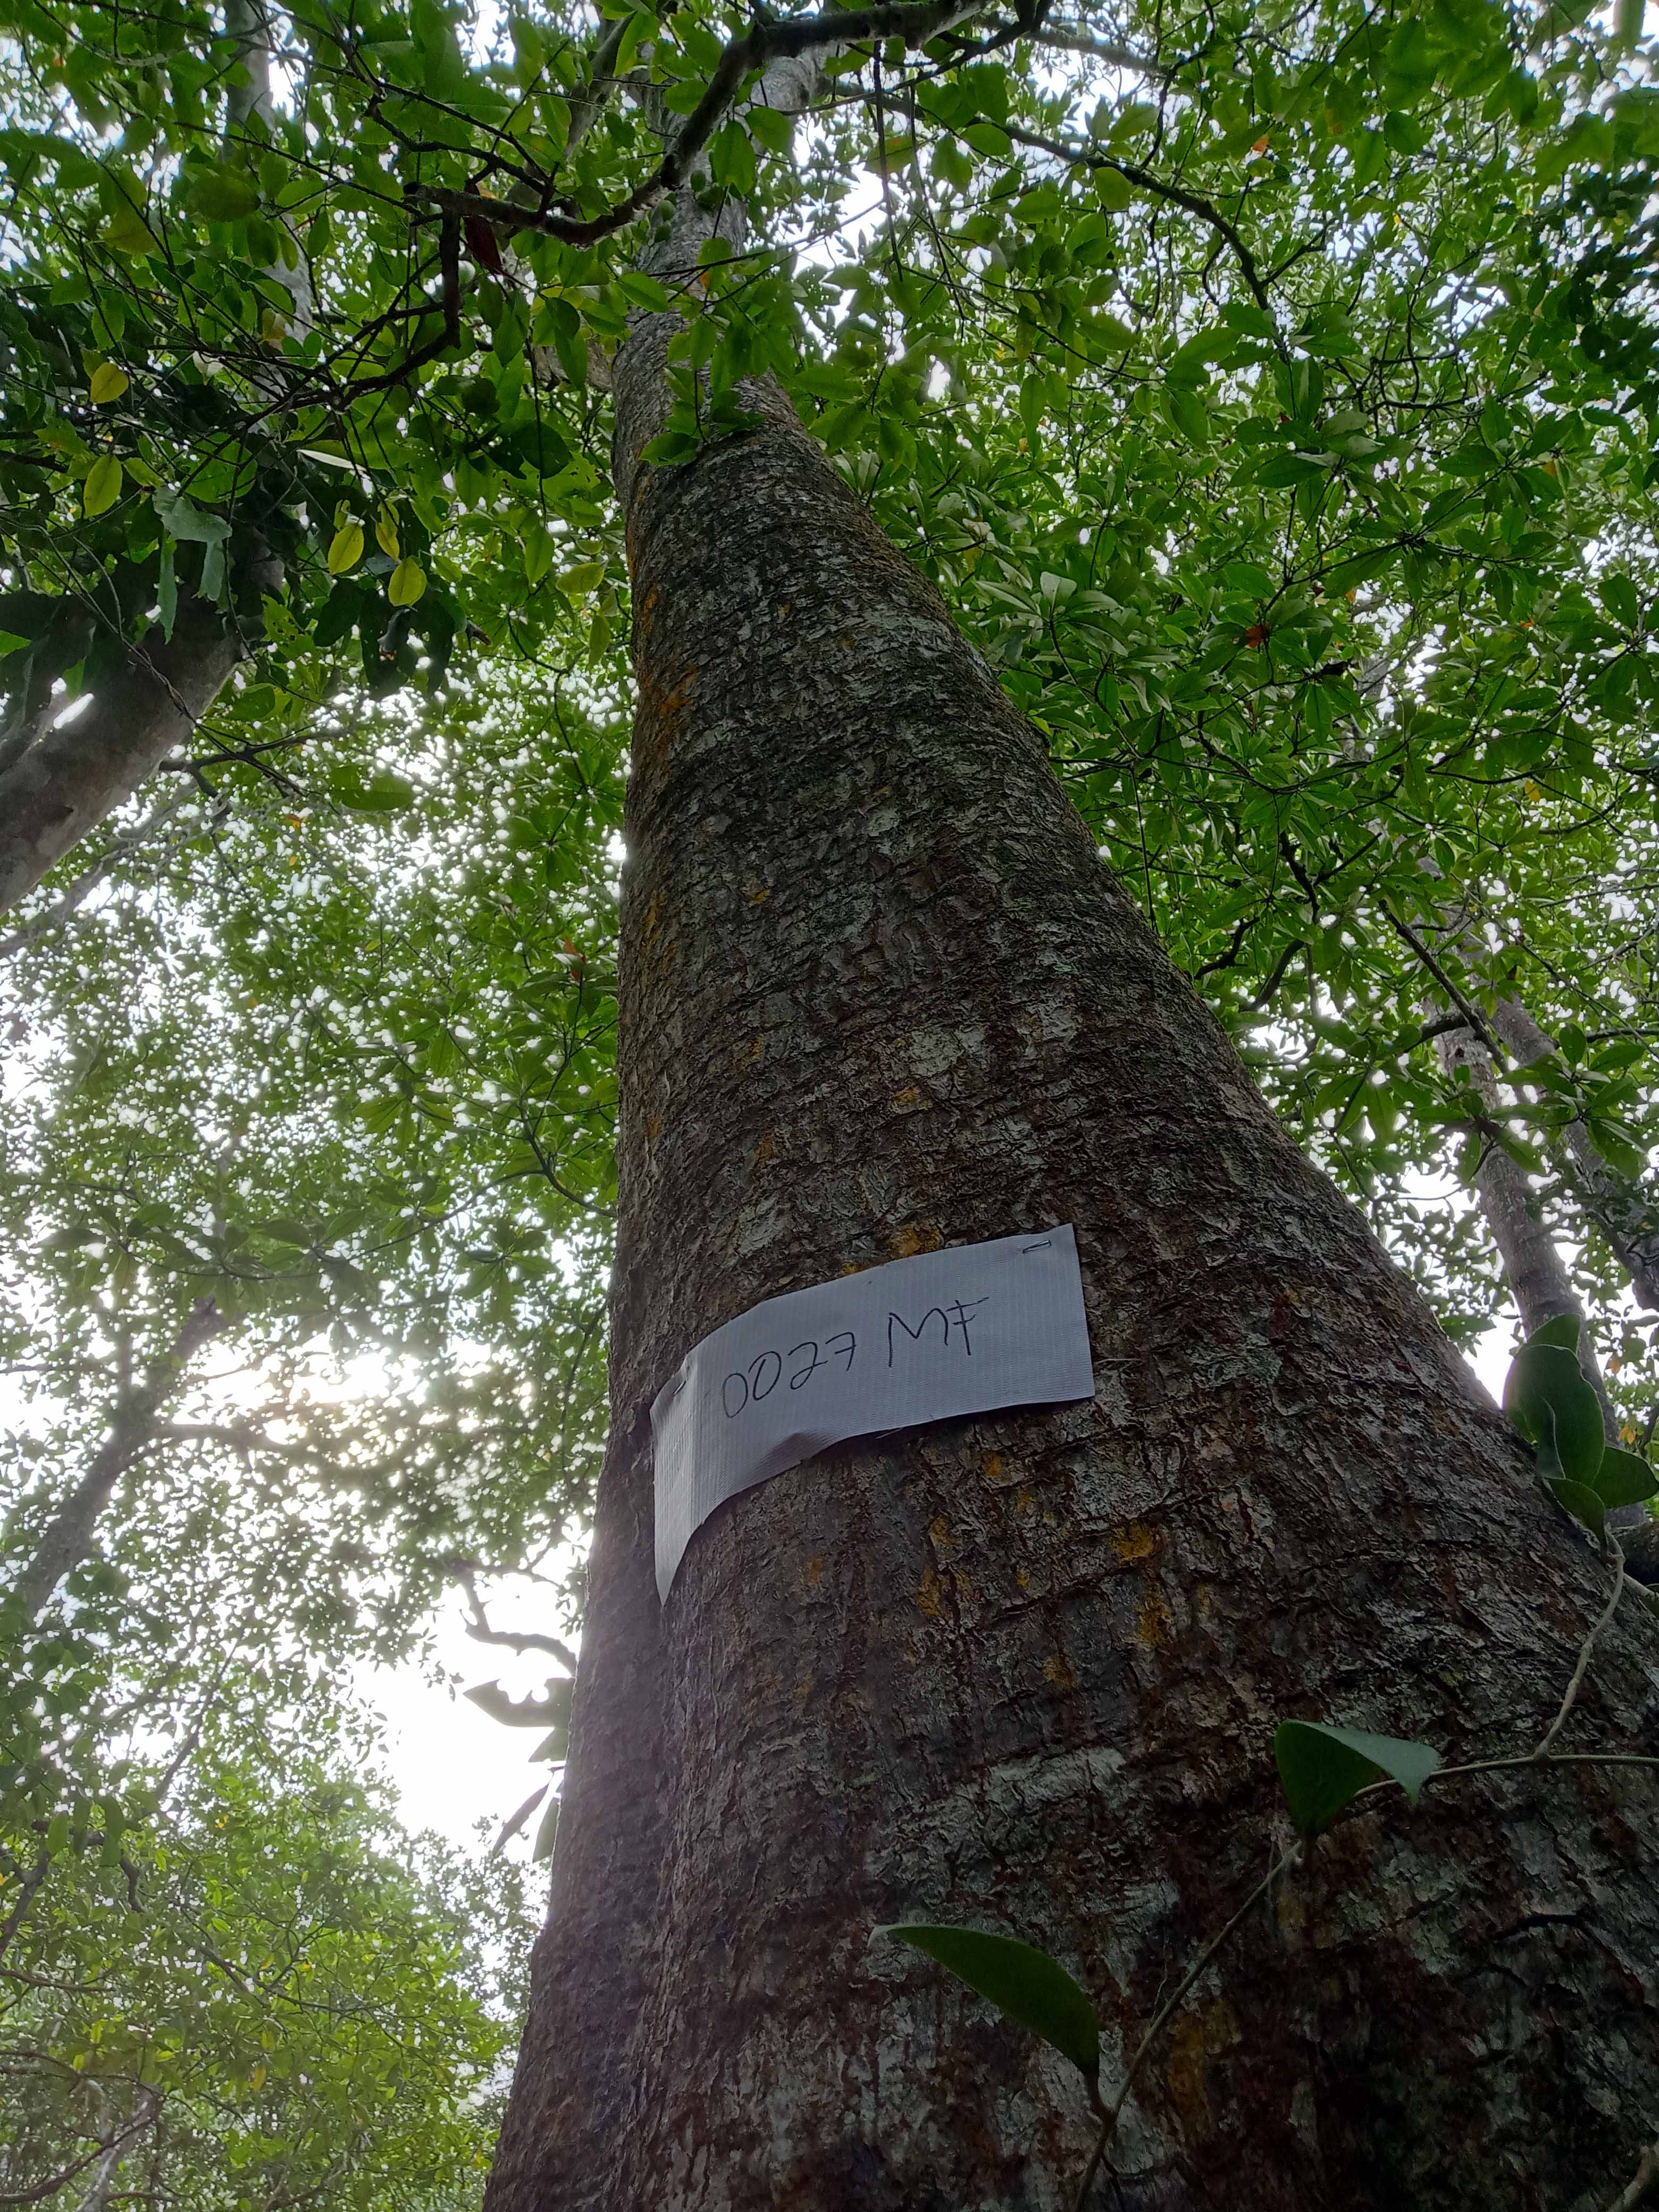 0027 MF